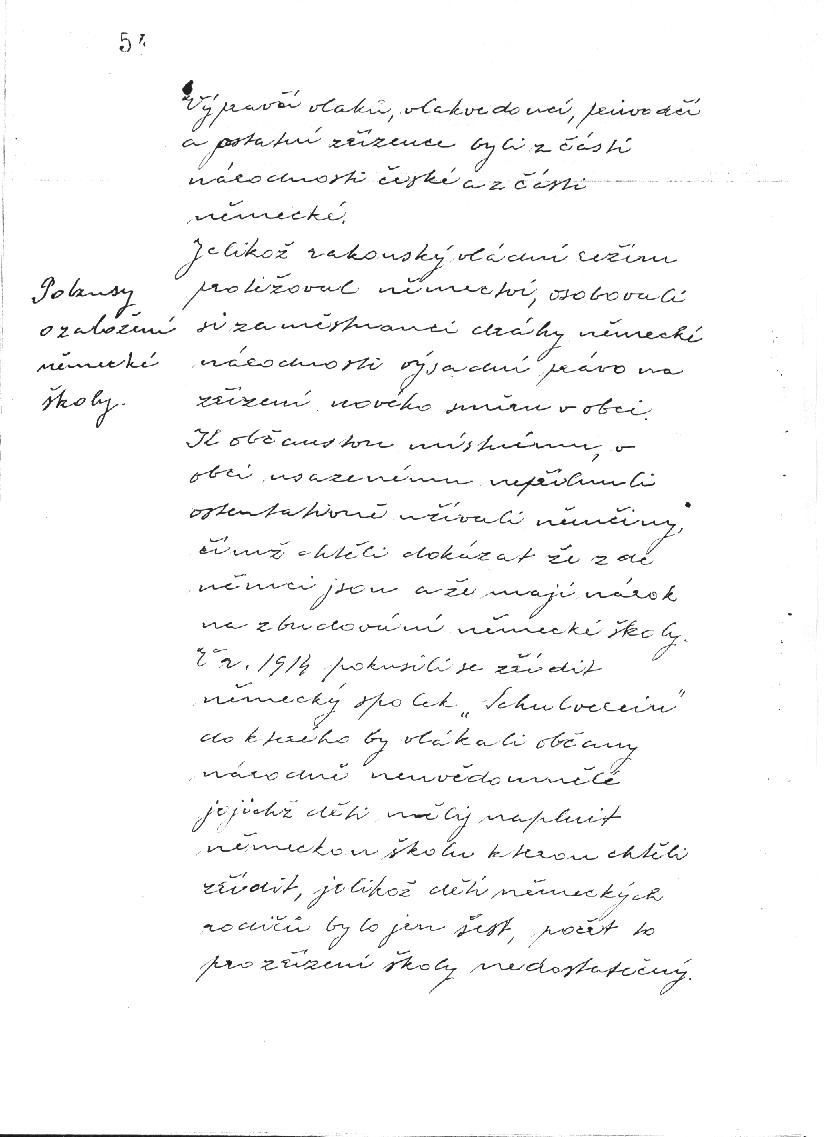 54
Výpravčí vlaků, vlakvedoucí, průvodčí
a ostatní zřízence byli z části
národnosti české a z části
německé.
Jelikož rakouský vládní režim
Pokusy
o založení
německé
školy.
protěžoval němectví, osobovali
si zaměstnanci dráhy německé
národnosti výsadní právo na
zřízení nového směru v obci.
K občanstvu místnímu, v
obci usazenému nepřilnuli
ostentativně užívali němčiny,
čímž chtěli dokázat že zde
němci jsou a že mají nárok
na zbudování německé školy.
V r. 1914 pokusili se zřídit
německý spolek „Schulverein"
do kterého by vlákali občany
národně neuvědomnělé
jejichž děti měly naplnit
německou školu kterou chtěli
zřídit, jelikož dětí německých
rodičů bylo jen šest, počet to
pro zřízení školy nedostatečný.